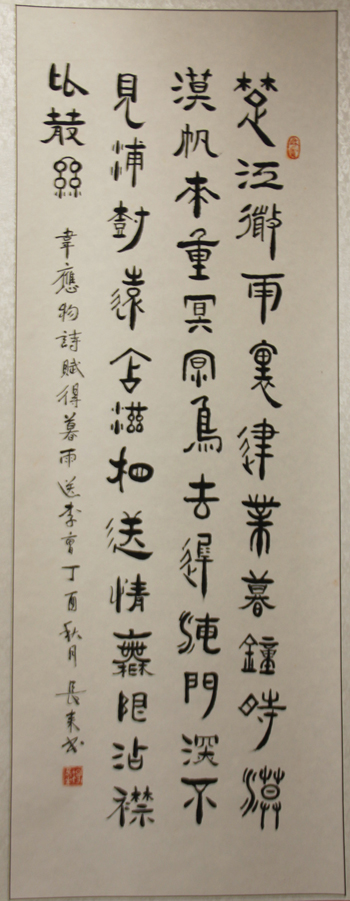 楚江微雨裏建業暮鐘時漠
漠帆來重冥冥鳥去遲海門深不
見浦樹遠含滋相送情無限沾襟
比散絲 韋應物詩賦得暮雨送李曹丁酉秋月長東书